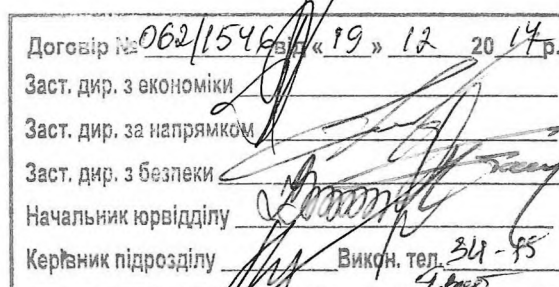 Договір № 062/1546 від « 19 » 12 20 17 р.
Заст. дир. з економіки
Заст. дир. за напрямком
Заст. дир. з безпеки
Начальник юрвідділу
Керівник підрозділу Викон. тел. 34-